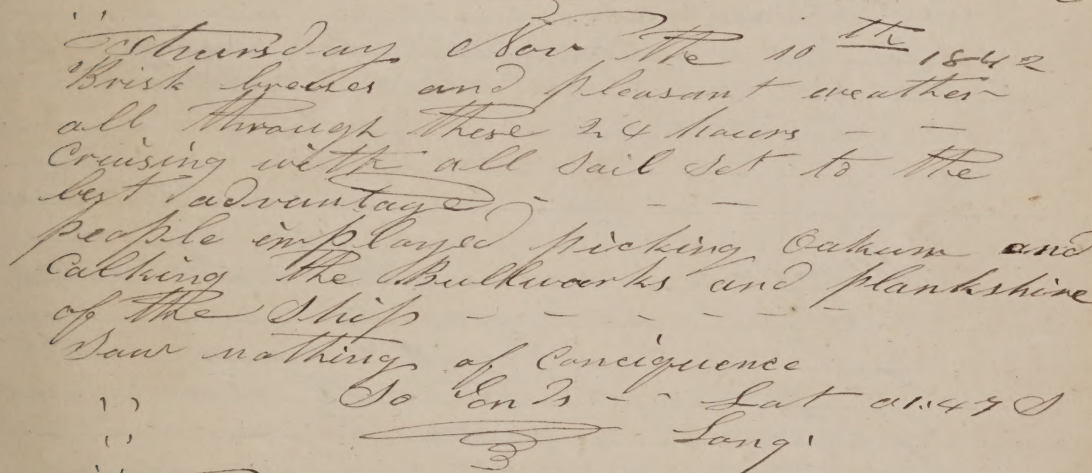 Thursday Nov the 10th 1842
Brisk breeses and pleasant weather
all through these 24 hours - -
Cruising with all sail set to the
best advantage - - -
people imployed picking Oakum and
Calking the Bulkwarks and plankshire
of the Ship - - - - - -
Saw nothing of Conciquence
So Ends - - Lat 01:47 S
Long